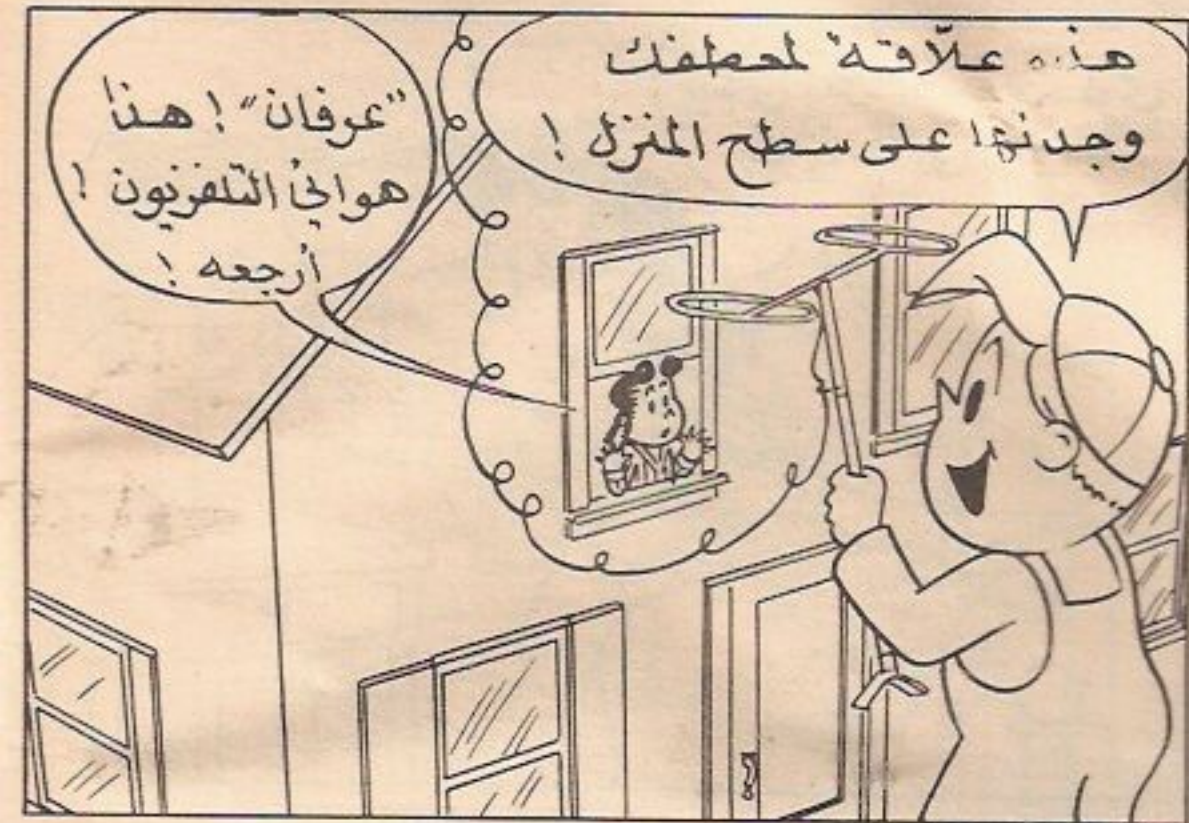 هذه علّاقة لمعطفك
وجدتها على سطح المنزل !
"عرفان" ! هذا
هوائيُ التلفزيون !
أرجعه !